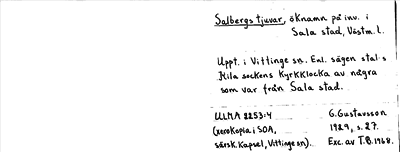 Salbergs tjuvar, öknamn på inv. i
Sala stad, Västm. l.
Uppt. i Vittinge sn. Enl. sägen stals
Kila sockens kyrkklocka av några
som var från Sala stad.
ULMA 2253:4
(xerokopia i SOA,
särsk. Kapsel, Vittinge sn).
G. Gustavsson
1929, s. 27.
Exc. av T.B. 1968.